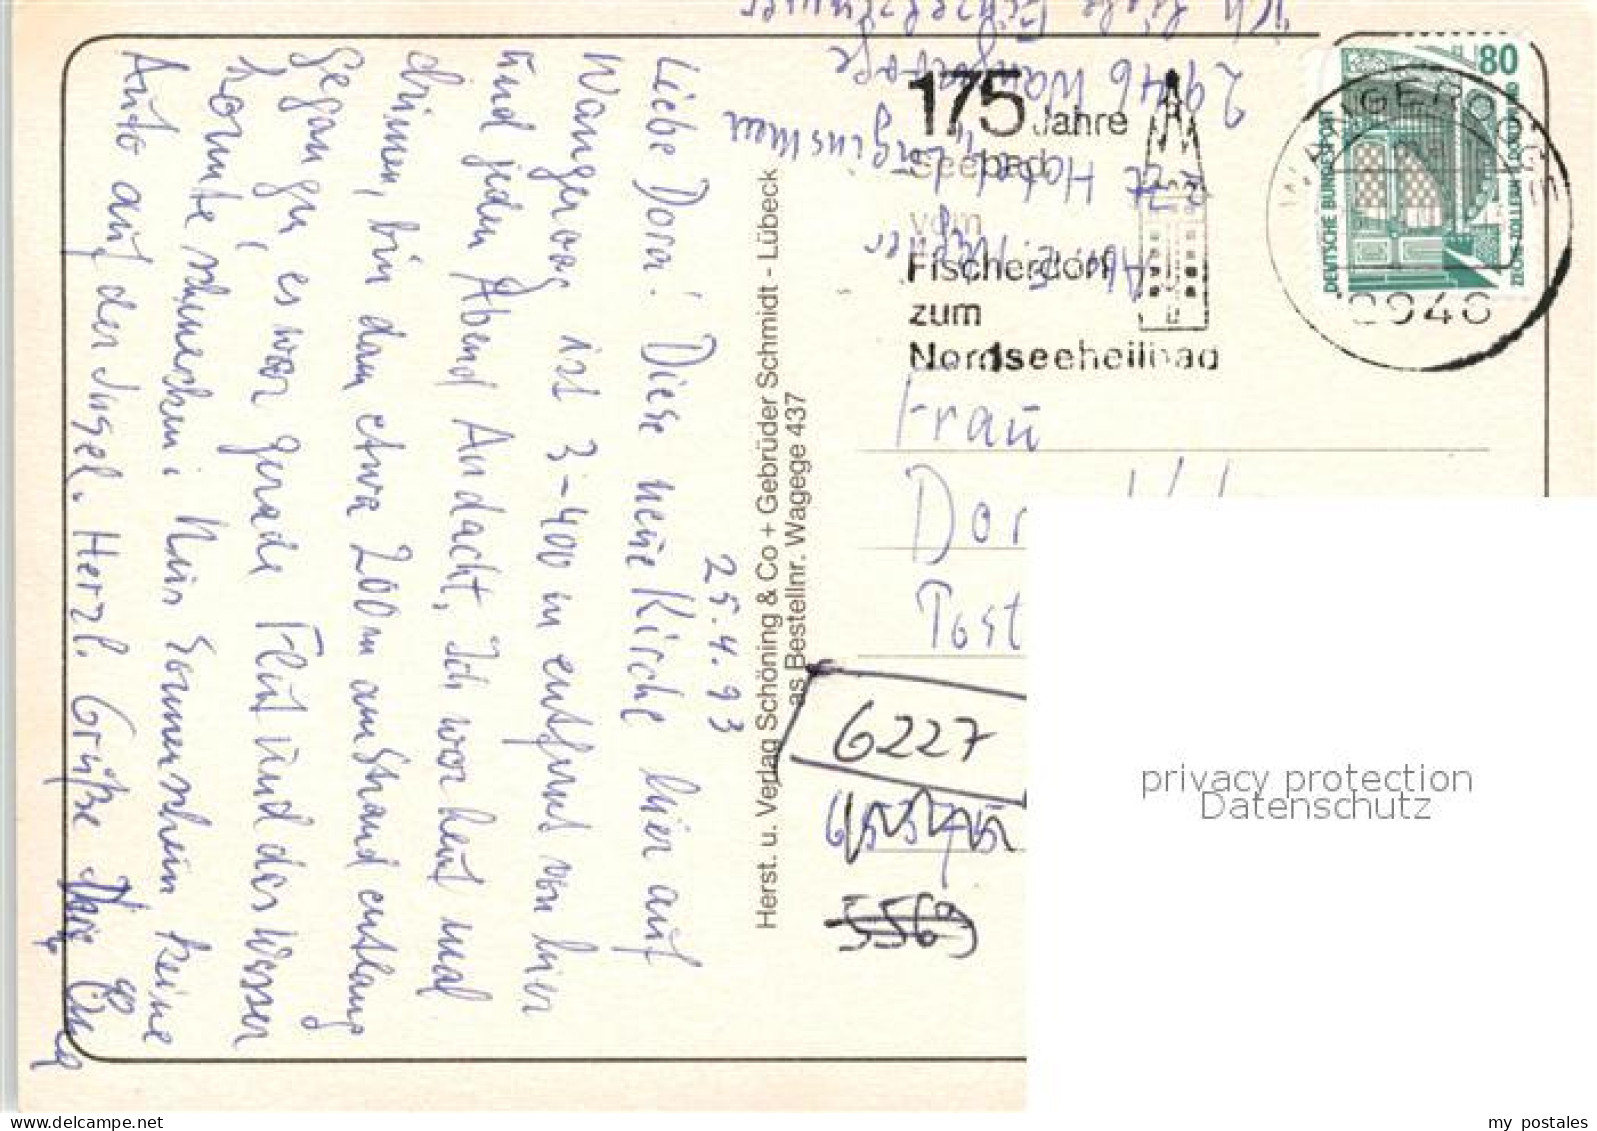 25.4.93
Liebe Dora! Diese neue Kirche hier auf
Wangeroog ist 3-400 m entfernt von hier
und jeden Abend Andacht, Ich war heut mal
drinnen, bin dann etwa 200m am Strand entlang
gegangen, es war gerade Flut und das Wasser
konnte schmecken. Nur Sonnenschein keine
Auto auf der Insel. Herzl. Grüße
Herst. u. Verlag Schöning & Co + Gebrüder Schmidt - Lübeck
as Bestellnr. Wagege 437
175 Jahre
Seebad
vom
Fischerdorf
zum
Nordseeheilbad
80
DEUTSCHE BUNDESPOST
ZECHE ZOLLERN II DORTMUND
WANGEROOGE
2946
Abs. E.
zzt Hotel
2946 Wangerooge
Ich liebe
Frau
Dor
Post
6227
5569
privacy protection
Datenschutz
my postales